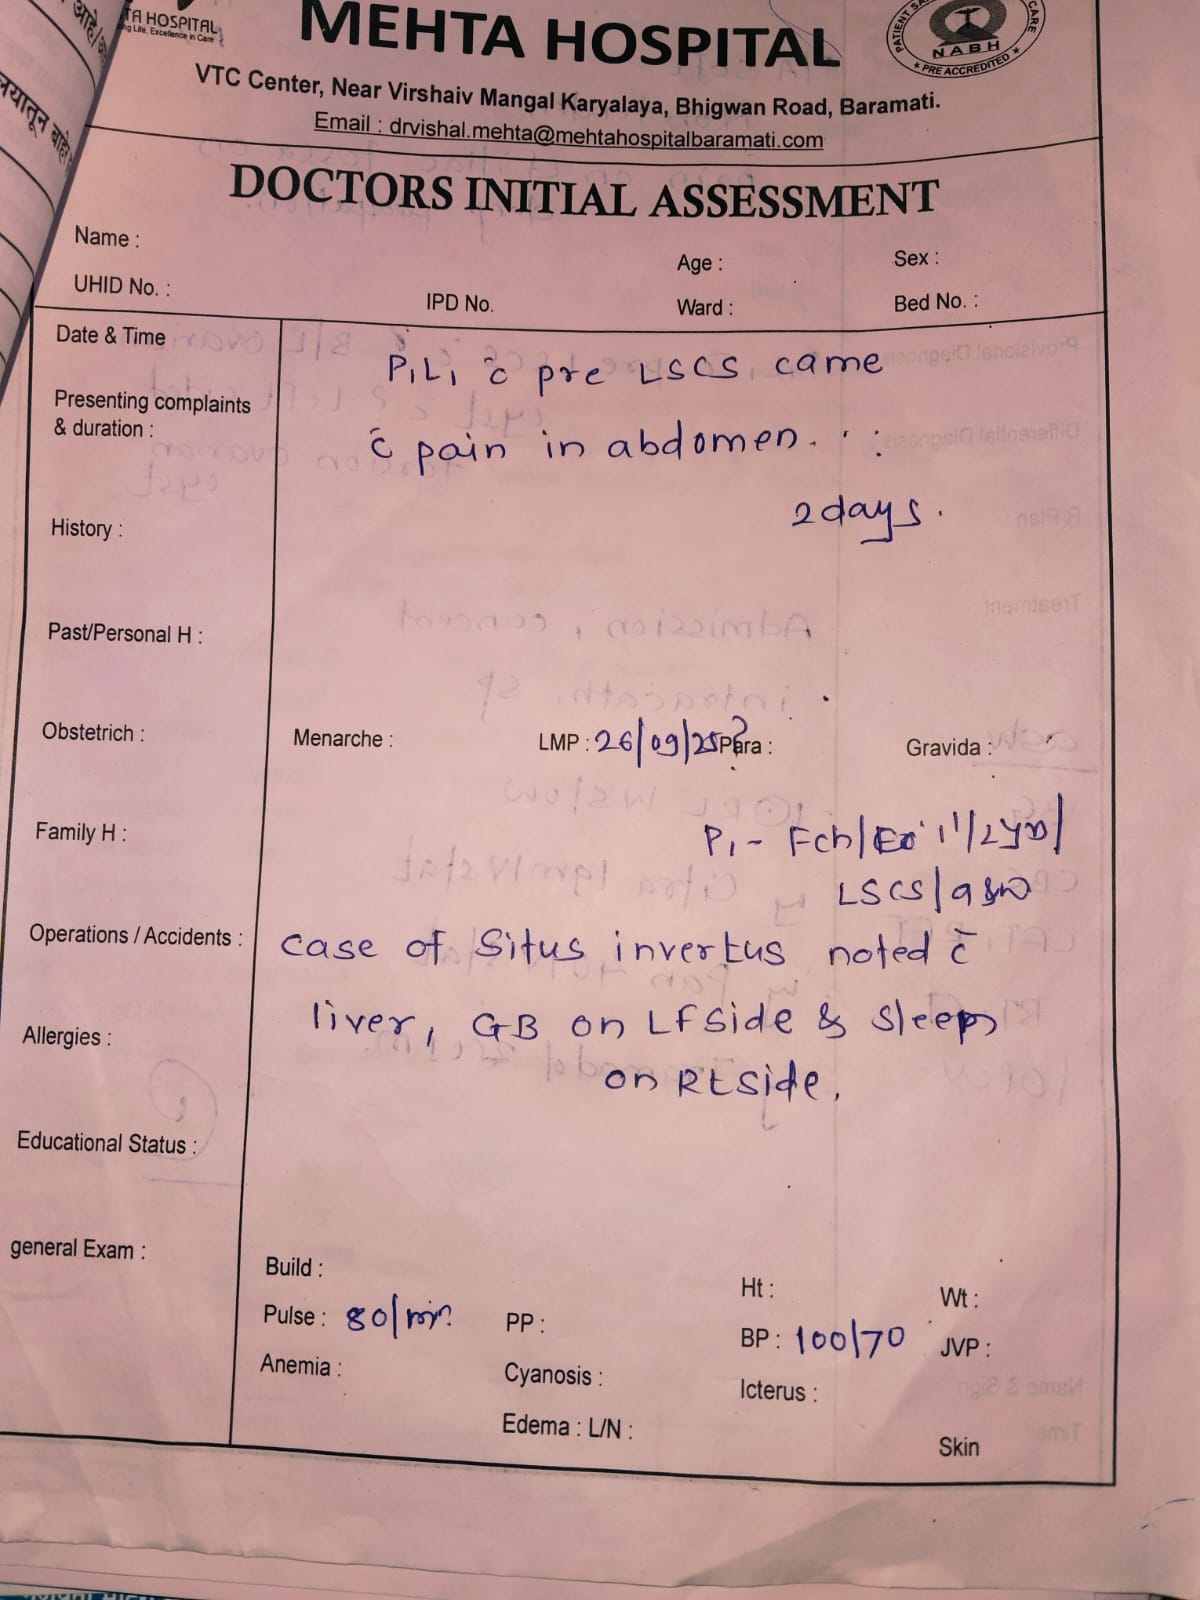 TA HOSPITAL
ng Life, Excellence in Care
MEHTA HOSPITAL
PATIENT SA CARE
NABH
PRE ACCREDITED
VTC Center, Near Virshaiv Mangal Karyalaya, Bhigwan Road, Baramati.
Email : drvishal.mehta@mehtahospitalbaramati.com
DOCTORS INITIAL ASSESSMENT
Name :
Age :
Sex :
UHID No. :
IPD No.
Ward :
Bed No. :
Date & Time
P1L1 c̄ pre LSCS came
Presenting complaints
& duration :
c̄ pain in abdomen.
2 days.
History :
Past/Personal H :
Obstetrich :
Menarche :
LMP : 26/09/25?
Para :
Gravida :
Family H :
P1 - Fch/
LSCS/
Operations / Accidents :
case of Situs invertus noted c̄
liver, GB on LFside & Sleep
on Rtside.
Allergies :
Educational Status :
general Exam :
Build :
Ht :
Wt :
Pulse : 80/min
PP :
BP : 100/70
JVP :
Anemia :
Cyanosis :
Icterus :
Edema : L/N :
Skin